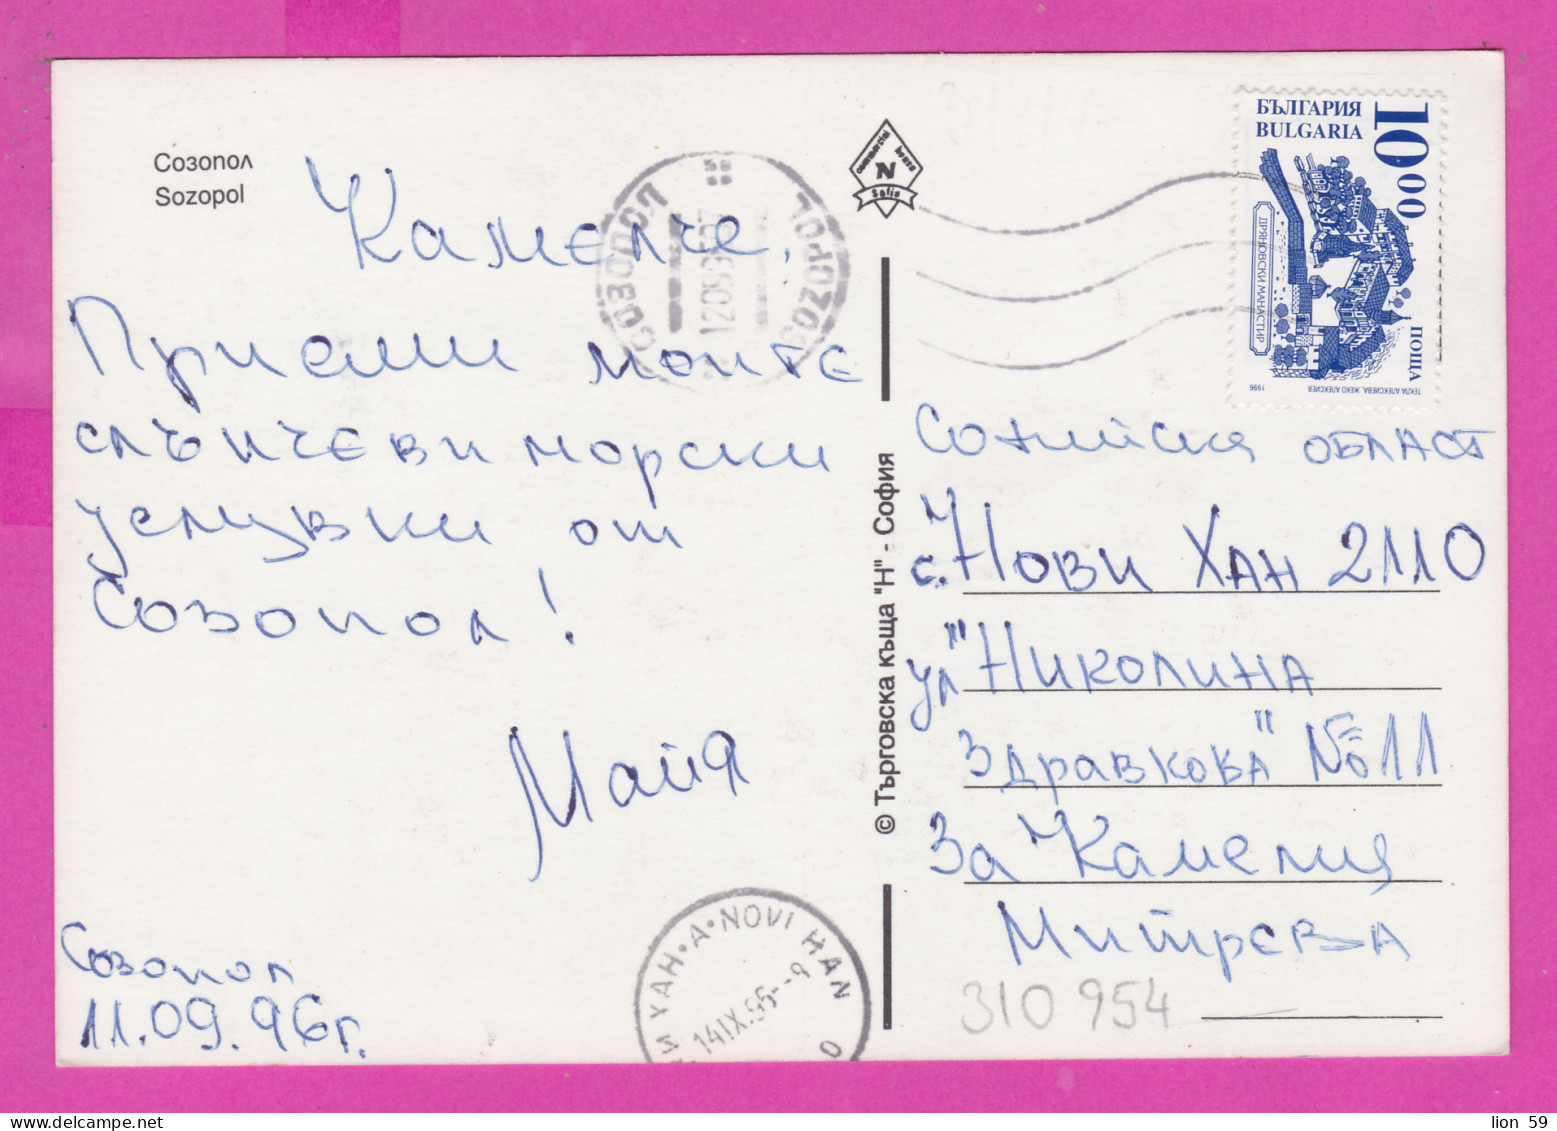 Созопол
Sozopol
Камелче,
Приеми моите
слънчеви морски
целувки от
Созопол!
Майя
Созопол
11.09.96г.
СОЗОПОЛ
SOZOPOL
NOVI HAN
14.IX.96.-8
commercial house
N
Sofia
© Търговска къща "Н" - София
БЪЛГАРИЯ
BULGARIA
1000
ПОЩА
ДРЯНОВСКИ МАНАСТИР
ТЕКЛА АЛЕКСИЕВА, ЖЕКО АЛЕКСИЕВ
1996
Софийска област
с. Нови Хан 2110
ул "Николина
Здравкова" №11
За Камелия
Митрева
310 954
lion 59